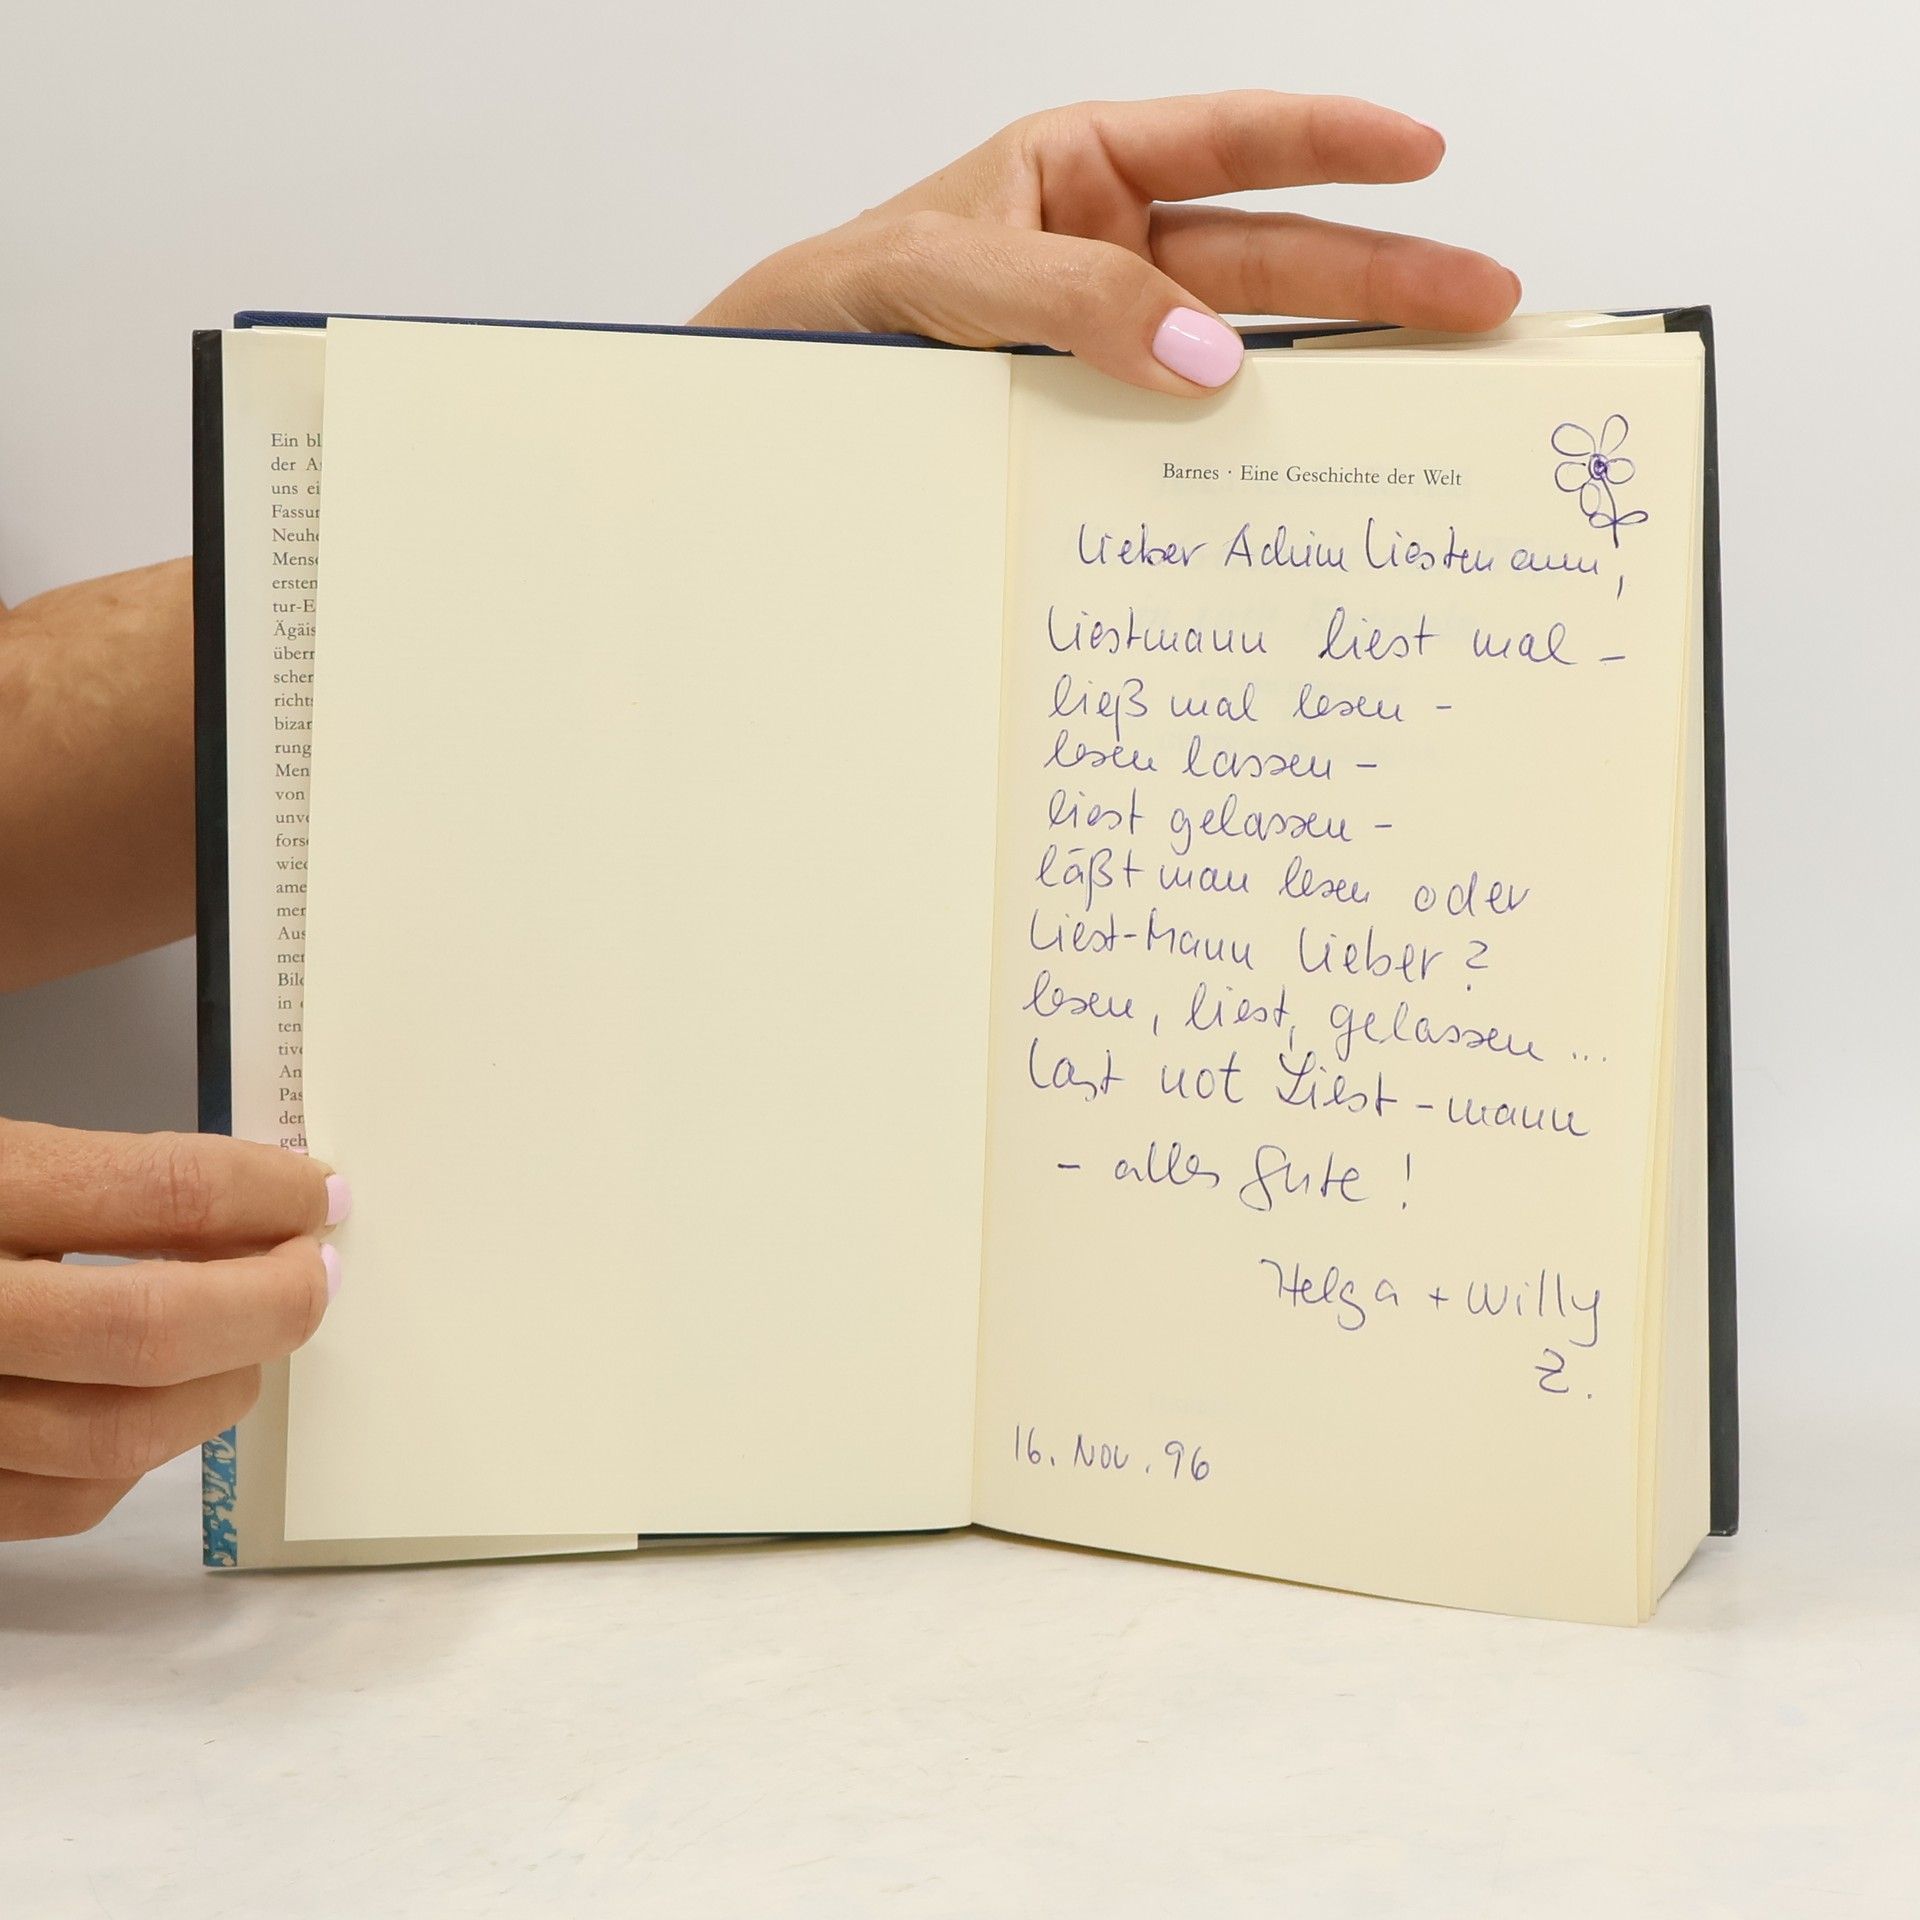 Ein bl
der A
uns ei
Fassun
Neuhe
Mensc
ersten
tur-E
Ägäis
überr
scher
richts
bizar
rung
Men
von
unve
forsc
wied
ame
mer
Aus
mer
Bild
in
ten
tive
An
Pas
der
geh
Barnes · Eine Geschichte der Welt
Lieber Achim Liestmann,
Liestmann liest mal –
ließ mal lesen –
lesen lassen –
liest gelassen –
läßt man lesen oder
Liest-Mann lieber?
lesen, liest, gelassen ...
Last not Liest-mann
– alles Gute!
Helga + Willy
Z.
16. Nov. 96